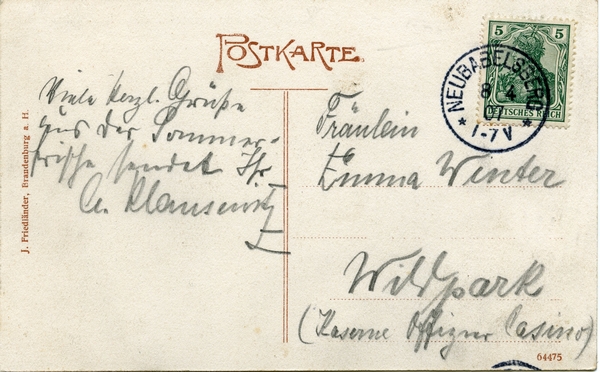 POSTKARTE.
Viele herzl. Grüße
aus der Sommer-
frische sendet Ihr
A. Klausewitz
Fräulein
Emma Winter
Wildpark
(Kaserne Offizier Casino)
5 5
DEUTSCHES REICH
NEUBABELSBERG
8 4
* 1-7V *
J. Friedländer, Brandenburg a. H.
64475